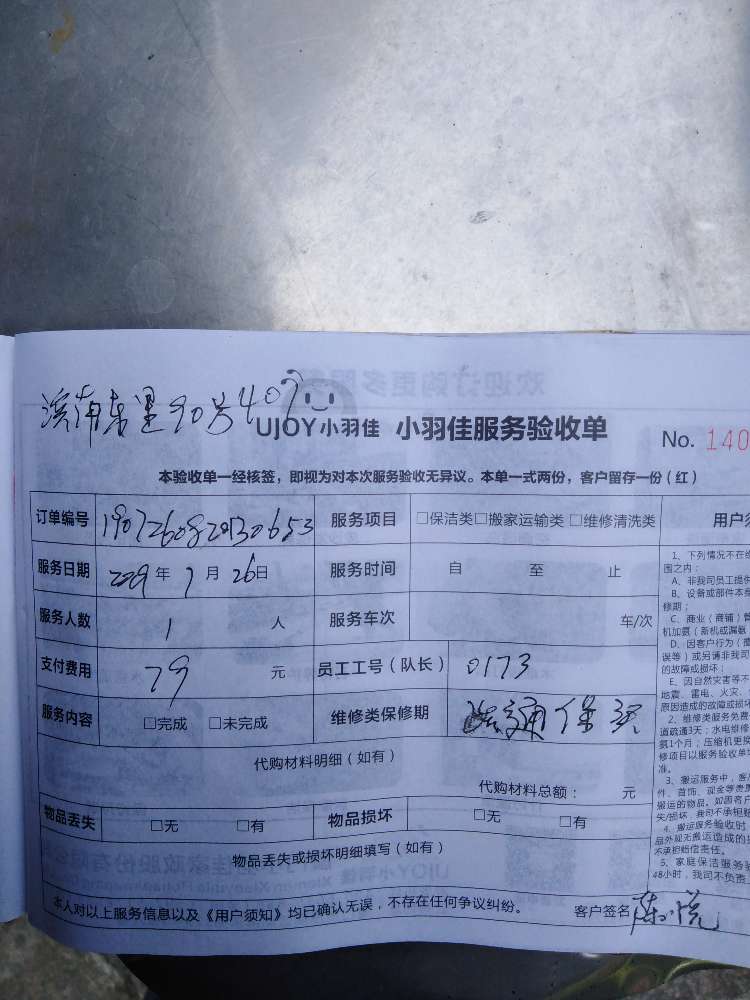 滨南东里90号407
UJOY小羽佳 小羽佳服务验收单 No. 140
本验收单一经核签，即视为对本次服务验收无异议。本单一式两份，客户留存一份（红）
订单编号 服务项目 □保洁类□搬家运输类□维修清洗类 用户须
服务日期 2019年7月26日 服务时间 自 至 止
服务人数 1 人 服务车次 车/次
支付费用 79 元 员工工号（队长） 0173
服务内容 □完成 □未完成 维修类保修期 疏通保3天
代购材料明细（如有）
代购材料总额： 元
物品丢失 □无 □有 物品损坏 □无 □有
物品丢失或损坏明细填写（如有）
本人对以上服务信息以及《用户须知》均已确认无误，不存在任何争议纠纷。 客户签名
1、下列情况不在维
围之内：
A、非我司员工提供
B、设备或部件本身
修期；
C、商业（商铺）
机加氨（新机或漏氨
D、因客户行为（
误等）或另请非我司
的故障或损坏；
E、因自然灾害等不
地震、雷电、火灾、
原因造成的故障或损坏
2、维修类服务免费
道疏通3天；水电维修
氨1个月；压缩机更换
修项目以服务验收单
准。
3、搬运服务中，客
件、首饰、现金等贵重
搬运的物品。如因客户
失/损坏，我司不承担赔
4、搬运服务验收时
品外观无搬运造成的
不承担赔偿责任。
5、家庭保洁服务
48小时，我司不负责